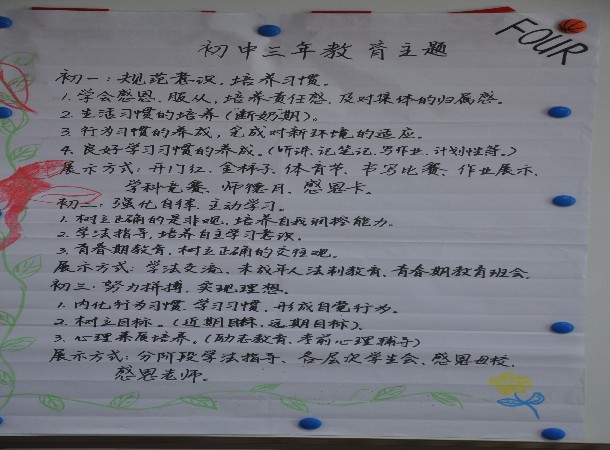 FOUR
初中三年教育主题
初一：规范意识，培养习惯。
1. 学会感恩、服从，培养责任感，及对集体的归属感。
2. 生活习惯的培养（断奶期）。
3. 行为习惯的养成，完成对新环境的适应。
4. 良好学习习惯的养成。（听讲、记笔记、写作业、计划性等。）
展示方式：开门红、金柿子、体育节、书写比赛、作业展示、
学科竞赛、师德月、感恩卡。
初二：强化自律，主动学习。
1. 树立正确的是非观，培养自我调控能力。
2. 学法指导，培养自主学习意识。
3. 青春期教育，树立正确的交往观。
展示方式：学法交流、未成年人法制教育、青春期教育班会。
初三：努力拼搏，实现理想。
1. 内化行为习惯，学习习惯，形成自觉行为。
2. 树立目标。（近期目标，远期目标）。
3. 心理素质培养。（励志教育、考前心理辅导）
展示方式：分阶段学法指导、各层次学生会、感恩母校、
感恩老师。